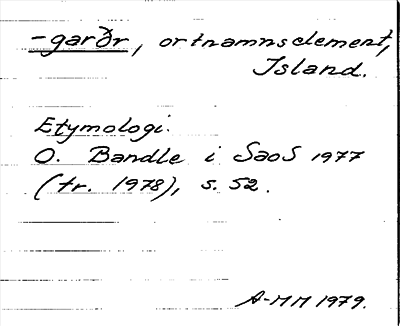 -garðr, ortnamnselement,
Island.
Etymologi:
O. Bandle i SaoS 1977
(tr. 1978), s. 52.
A-MM 1979.